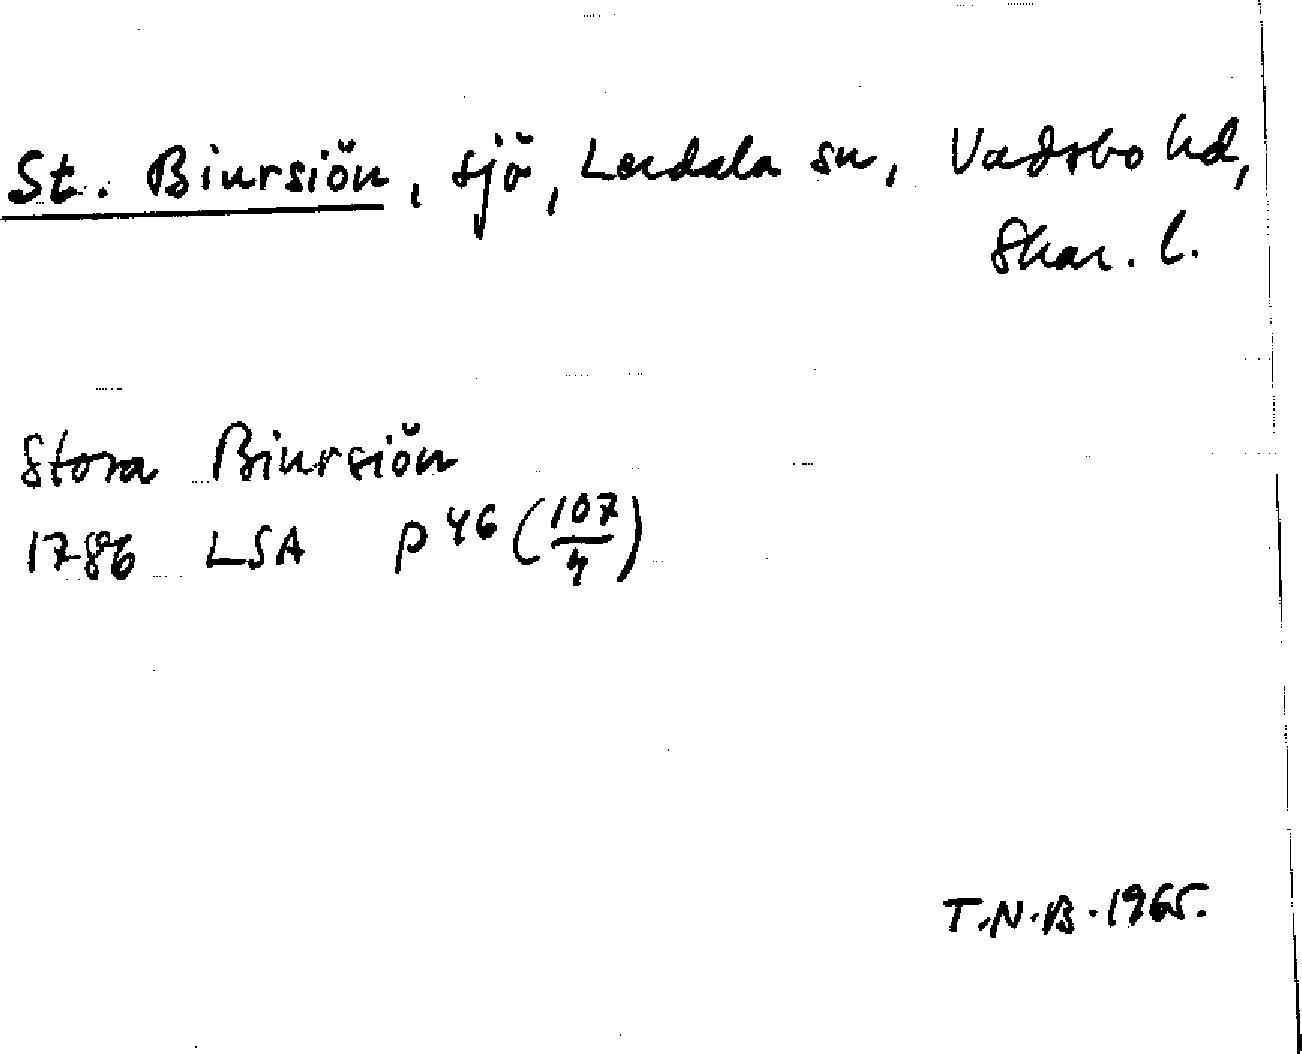 St. Biursiön, sjö, Lerdala sn, Vadsbo hd,
Skar. l.
Stora Biursiön
1786 LSA P 46 (107/4)
T.N.B. 1965.